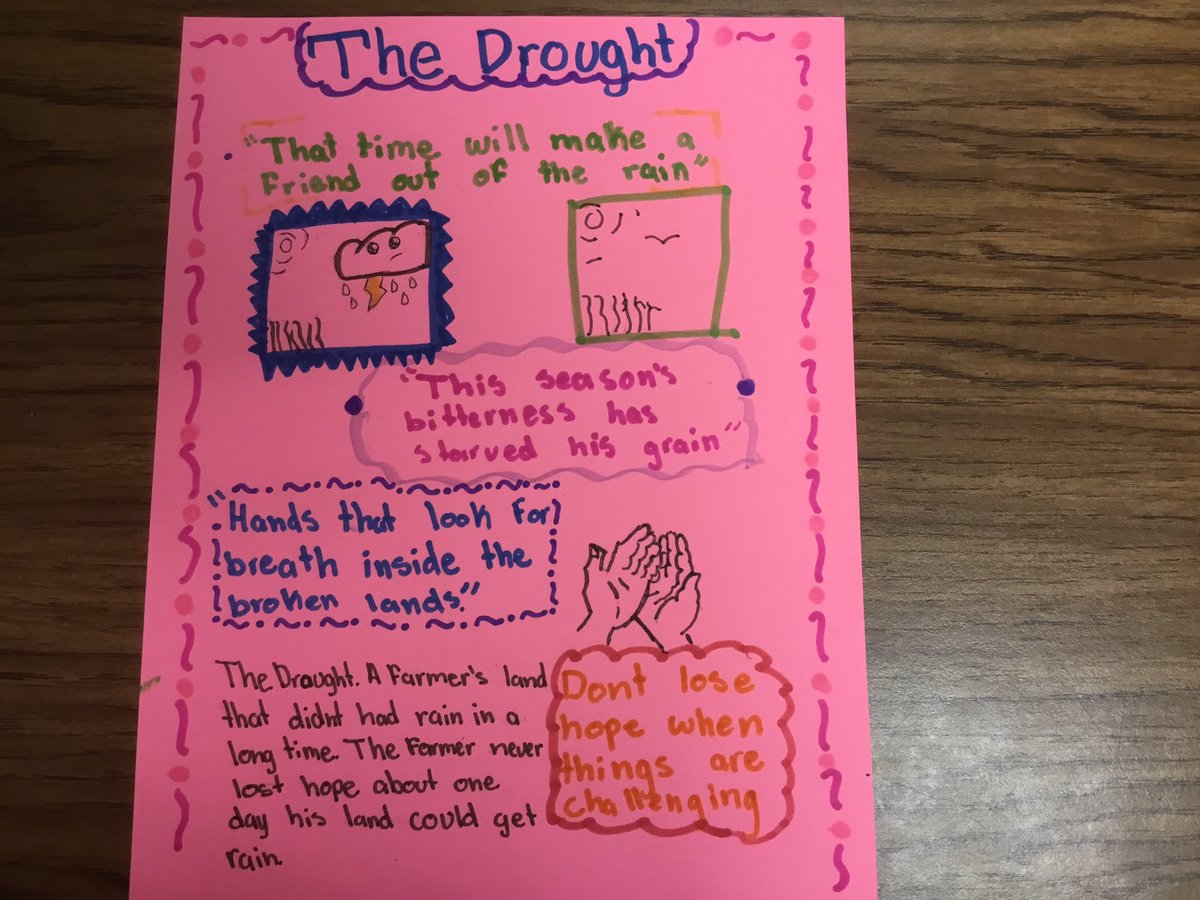 The Drought
"That time will make a
friend out of the rain"
"This season's
bitterness has
starved his grain"
"Hands that look for
breath inside the
broken lands."
The Drought. A Farmer's land
that didnt had rain in a
long time. The Farmer never
lost hope about one
day his land could get
rain.
Dont lose
hope when
things are
challenging